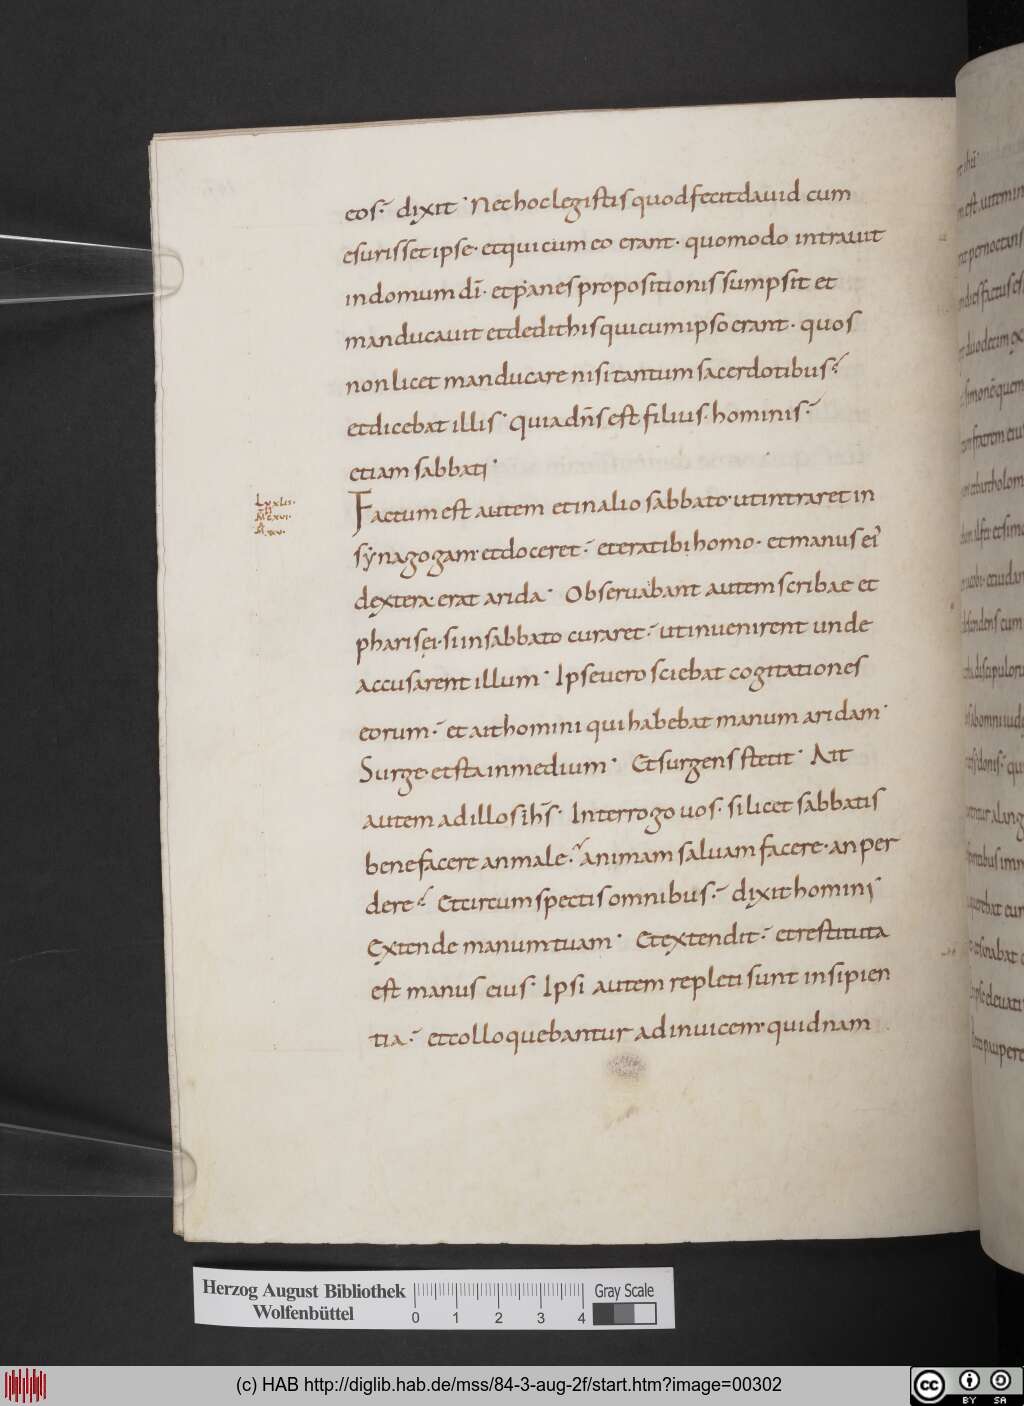 eos· dixit· Nec hoc legistis quod fecit dauid cum
esurisset ipse· et qui cum eo erant· quomodo intrauit
in domum dī· et panes propositionis sumpsit et
manducauit et dedit his qui cum ipso erant· quos
non licet manducare nisi tantum sacerdotibus?
et dicebat illis· Quia dn̄s est filius· hominis·
etiam sabbati·
Factum est autem et in alio sabbato· ut intraret in
sẏnagogam· et doceret· et erat ibi homo· et manus ei'
dextera· erat arida· Obseruabant autem scribae et
pharisęi· si in sabbato curaret· ut inuenirent unde
accusarent illum· Ipse uero sciebat cogitationes
eorum· et ait homini qui habebat manum aridam·
Surge· et sta in medium· Et surgens stetit· Ait
autem ad illos ih̄s· Interrogo uos· si licet sabbatis
bene facere an male· animam saluam facere· an per
dere? Et circumspectis omnibus· dixit homini
Extende manum tuam· Et extendit· et restituta
est manus eius· Ipsi autem repleti sunt insipien
tia· et colloquebantur ad inuicem· quidnam
Herzog August Bibliothek
Wolfenbüttel
0 1 2 3 4
Gray Scale
(c) HAB http://diglib.hab.de/mss/84-3-aug-2f/start.htm?image=00302
cc BY SA